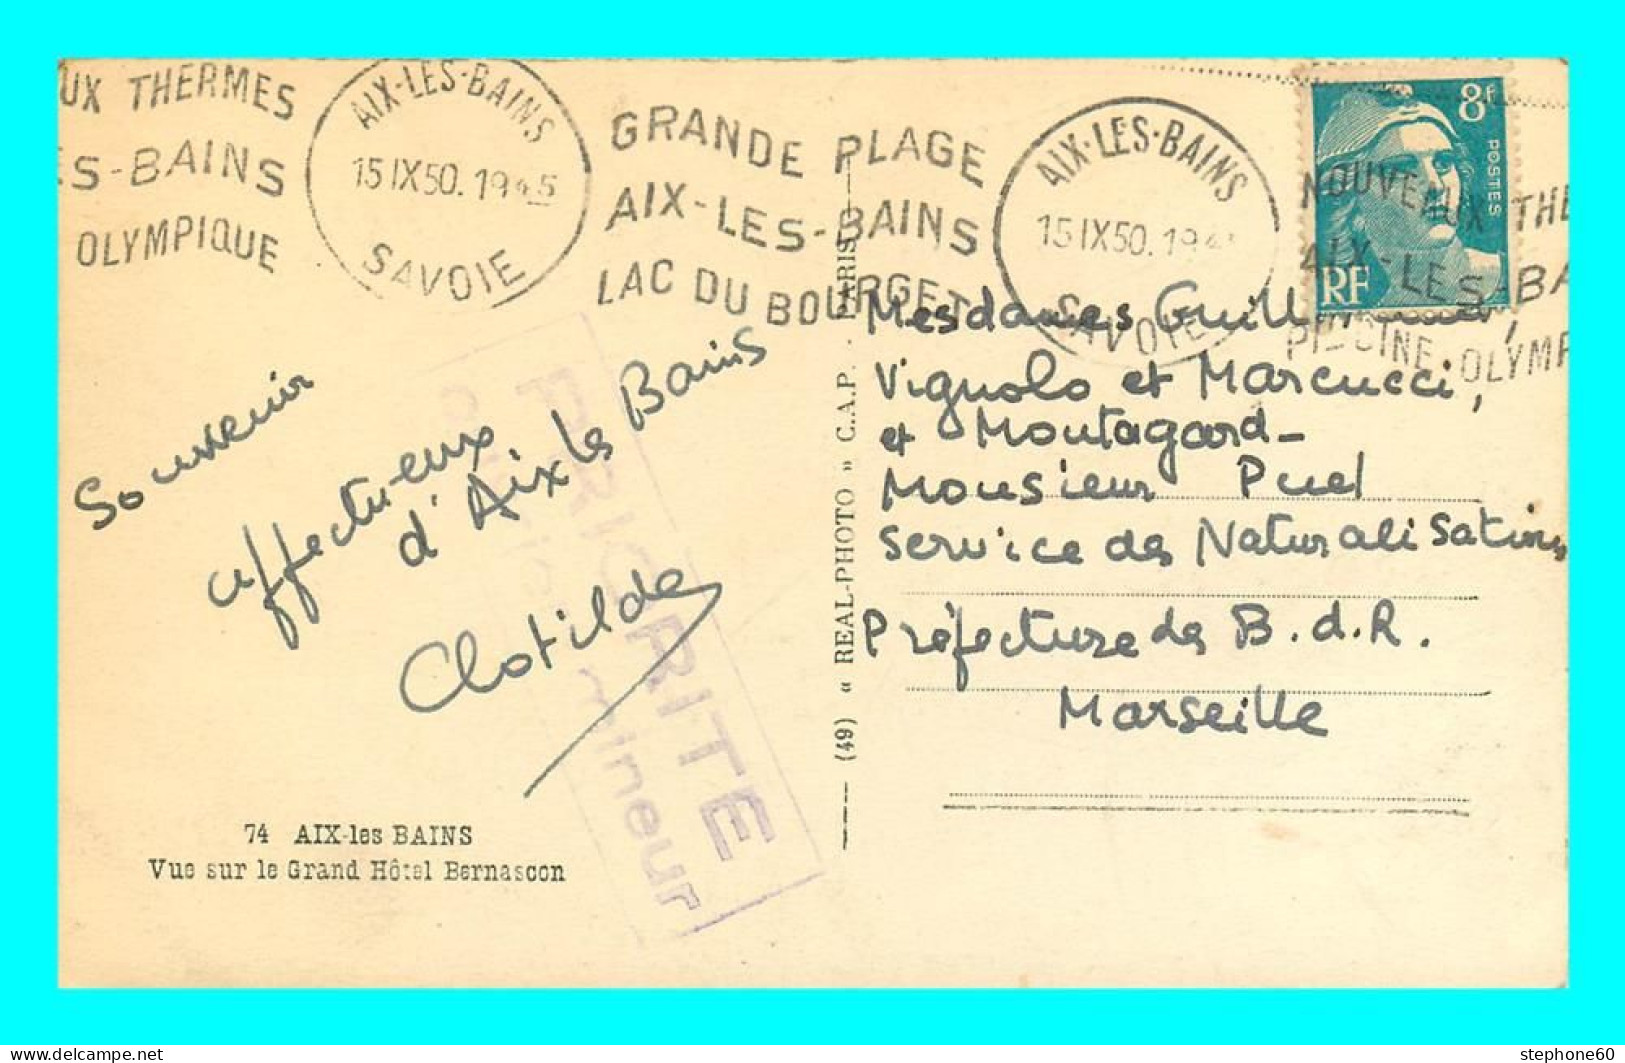 UX THERMES
ES-BAINS
OLYMPIQUE
AIX-LES-BAINS
15 IX 50. 1945
SAVOIE
GRANDE PLAGE
AIX-LES-BAINS
LAC DU BOURGET
AIX-LES-BAINS
15 IX 50. 19
SAVOIE
NOUVEAUX THE
AIX-LES-BA
PISCINE OLYMP
8f
POSTES
RF
Souvenir
affectueux
d'Aix les Bains
Clotilde
PRIORITE
mineur
74 AIX-les BAINS
Vue sur le Grand Hôtel Bernascon
(49) « REAL-PHOTO » C.A.P. - PARIS
Mesdames
Vignolo et Marcucci,
et Montagard -
Monsieur Puel
Service des Naturalisations
Préfecture des B.d.R.
Marseille
stephone60